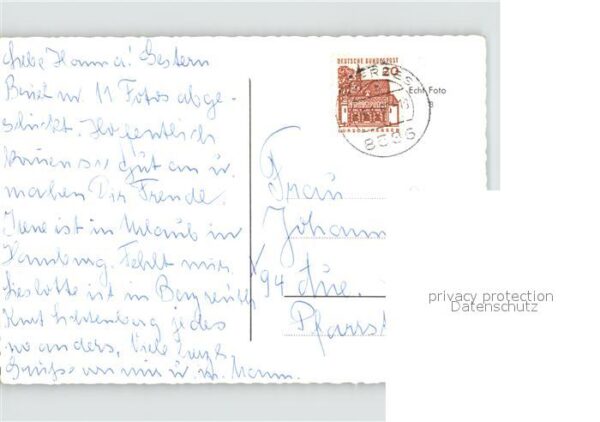 Liebe Hanna! Gestern
Brief m. 11 Fotos abge-
schickt. Hoffentlich
kommen sie gut an u.
machen Dir Freude.
Irene ist in Urlaub in
Hamburg. Fehlt mir.
Lieslotte ist in Bayreuth
Kurt Lichtenberg jedes
wo anders. Viele
Grüße von mir u. m. Mann.
DEUTSCHE BUNDESPOST
20
LORSCH HESSEN
Echt Foto
Frau
Johann
94 Aue.
Pfarrst
privacy protection
Datenschutz